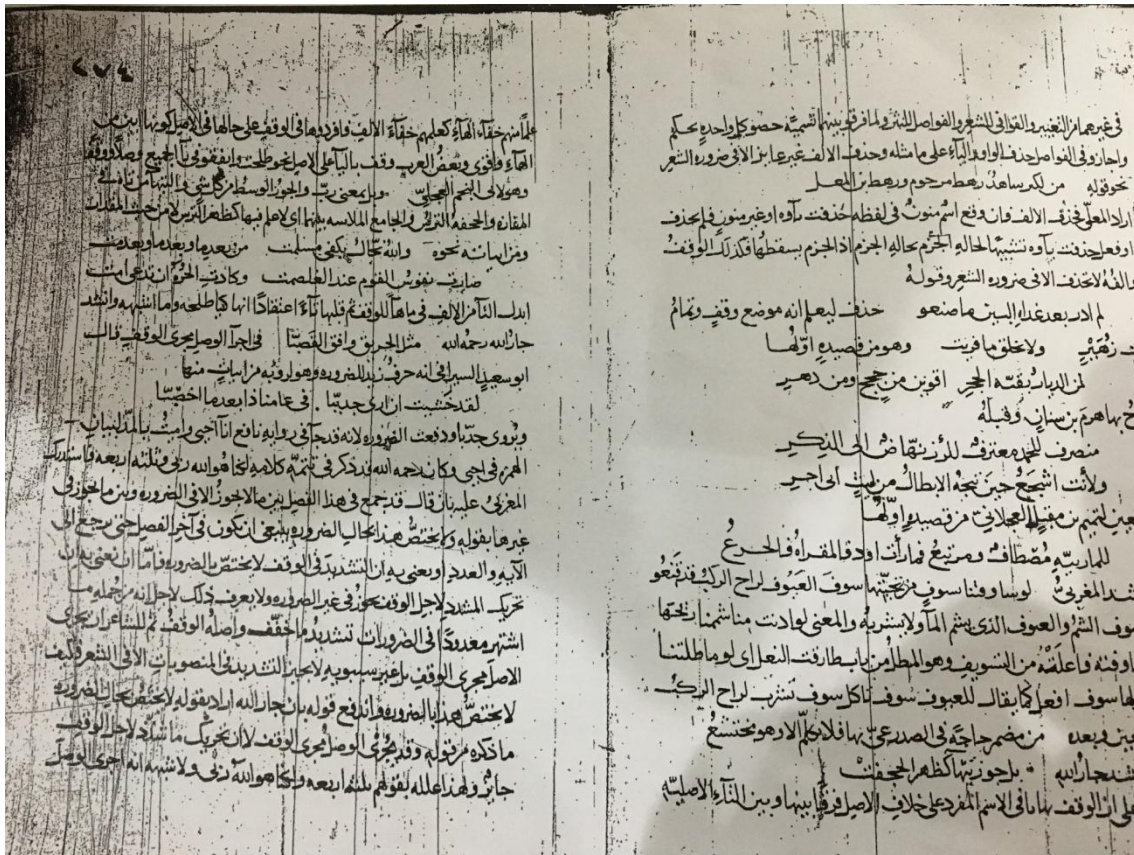 في غيرهما من التغيير والقوافي الشعر والفواصل النثر ولما فرقوا بينهما تسمية خصوا كل واحد بحكم
واجازوا في الفواصل حذف الواو والياء على ما مثله وحذف الالف غير جايز الا في ضرورة الشعر
نحو قوله من لكيز شاهد رهط مرجوم ورهط بن المعل
اراد المعلى فحذف الالف فان وقع اسم منون في لفظه حذفت ياؤه او غير منون فلم يحذف
او فعل حذفت ياؤه تشبيها لحالة الجزم اذ الجزم يسقطها فكذلك الوقف
والفه لا تحذف الا في ضرورة الشعر وقوله
لم ادر بعد غداة البين ما صنعو حذف ليعلم انه موضع وقف وتمام
ت زهير ولا يخلق ما فريت وهو من قصيدة اولها
لمن الديار بقنة الحجر اقوين من حجج ومن دهر
ح بها هرم بن سنان وقبله
متصرف للحمد معترف للرزء نهاض الى الذكر
ولأنت اشجع حين تتجه الابطال من ليث ابي اجر
لتميم بن مقبل العجلاني من قصيدة اولها
للمازنية مصطاف ومرتبع فما رأت اود فالمقراة فالجرع
شد المغربي لو ساوفتنا بسوف من تحيتها سوف العيوف لراح الركب قد قنعو
سوف الشم والعيوف الذي يشم الماء ولا يشربه والمعنى لو ادنت منا شمنا ريحها
من التسويف وهو المطل من باب طارقت النعل اي لو ماطلتنا
لها سوف افعل كما يقال للعيوف سوف تاكل سوف تشرب لراح الركب
وبعده من مضمر حاجة في الصدر عي بها فلا يكلم الا وهو مختشع
شد جار الله بل جوز تيهاء كظهر الحجفت
على ان الوقف بها في الاسم المفرد على خلاف الاصل فرقا بينها وبين التاء الاصلية
٢٧٤
علما منهم خفاء الهاء كعلمهم خفاء الالف وافردوها في الوقف على حالها في الاصل كونها ابين من
الهاء واقوى وبعض العرب وقف بالتاء على الاصل نحو طلحت واتفقوا في تاء الجميع وصلا ووقفا
وهو لابي النجم العجلي وبل بمعنى رب والجوز الوسط من كل شي والتيهاء من تاه في
المفازة والحجفة الترس والجامع الملاسة بينهما اي لا علم فيها كظهر الترس لا من حيث المقدار
ومن ابياته نحوه والله نجاك بكفي مسلمت من بعدما وبعدما وبعدمت
صارت نفوس القوم عند الغلصمت وكادت الحرة ان تدعى امت
ابدل التاء من الالف في ما هاء للوقف ثم قلبها تاء اعتقادا انها كتاء طلحة وما اشبهه وانشد
جار الله رحمه الله مثل الحريق وافق القصبا في اجراء الوصل مجرى الوقف قال
ابو سعيد السيرافي انه حرف زيد للضرورة وهو لرؤبة من ابيات منها
لقد خشيت ان ارى جدبا في عامنا ذا بعد ما اخصبا
ويروى جدبا ودفعت الضرورة لانه قد جاء في رواية نافع انا آجي وامت بالمد لبيان
الهمزة في اجي وكان رحمه الله قد ذكر في تتمة كلامه لكنا هو الله ربي وثلثة اربعة فاستدرك
المغربي عليه بان قال قد جمع في هذا الفصل بين ما لا يجوز الا في الضرورة وبين ما يجوز في
غيرها بقوله ولا يختص هذا بحال الضرورة ينبغي ان يكون في آخر الفصل حتى يرجع الى
الآية والعدد او يعنى به ان التشديد في الوقف لا يختص الضرورة فاما ان يعنى به ان
تحريك المشدد لاجل الوقف يجوز في غير الضرورة ولا يعرف ذلك لاجل انه من جملة ما
اشتهر معدودا في الضرورات تشديد ما خفف واصله الوقف ثم للشاعر ان يجري
الاصل مجرى الوقف بل غير سيبويه لا يجيز التشديد في المنصوبات الا في الشعر فكيف
لا يختص هذا بالضرورة واندفع قوله بان جار الله اراد بقوله لا يختص بحال الضرورة
ما ذكره من قوله وقد يجرى الوصل مجرى الوقف لا ان تحريك ما شدد لاجل الوقف
جائز ولهذا علله بقولهم ثلثة اربعة ولكنا هو الله ربي ولا شبهة انه اجرى الوصل